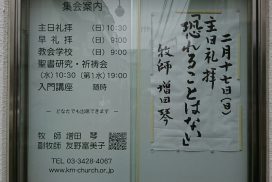 集会案内
主日礼拝 (日) 10:30
早 礼 拝 (日) 9:00
教会学校 (日) 9:00
聖書研究・祈祷会
(水) 10:30 (第1水) 19:00
入門講座 随時
― どなたでも出席できます ―
牧 師 増田 琴
副牧師 友野富美子
TEL 03-3428-4067
www.km-church.or.jp
二月十七日(日)
主日礼拝
「恐れることはない」
牧師 増田琴